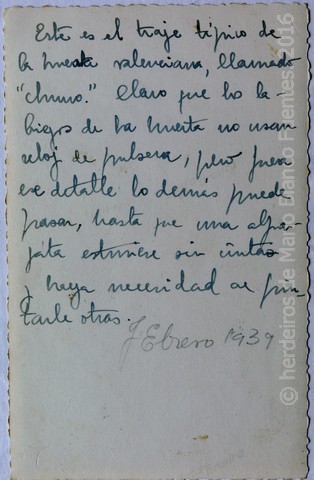 Este es el traje típico de
la huerta valenciana, llamado
"churro." Claro que los la-
biegos de la huerta no usan
reloj de pulsera, pero fuera
ese detalle lo demás puede
pasar, hasta que una alpar-
gata estuviese sin cintas
y haya necesidad de pin-
tarle otras.
FEbrero 1939
© herdeiros de Mario Blanco Fuentes, 2016